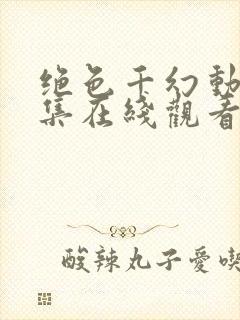 绝色千幻動
集在綫觀看
酸辣丸子愛喫